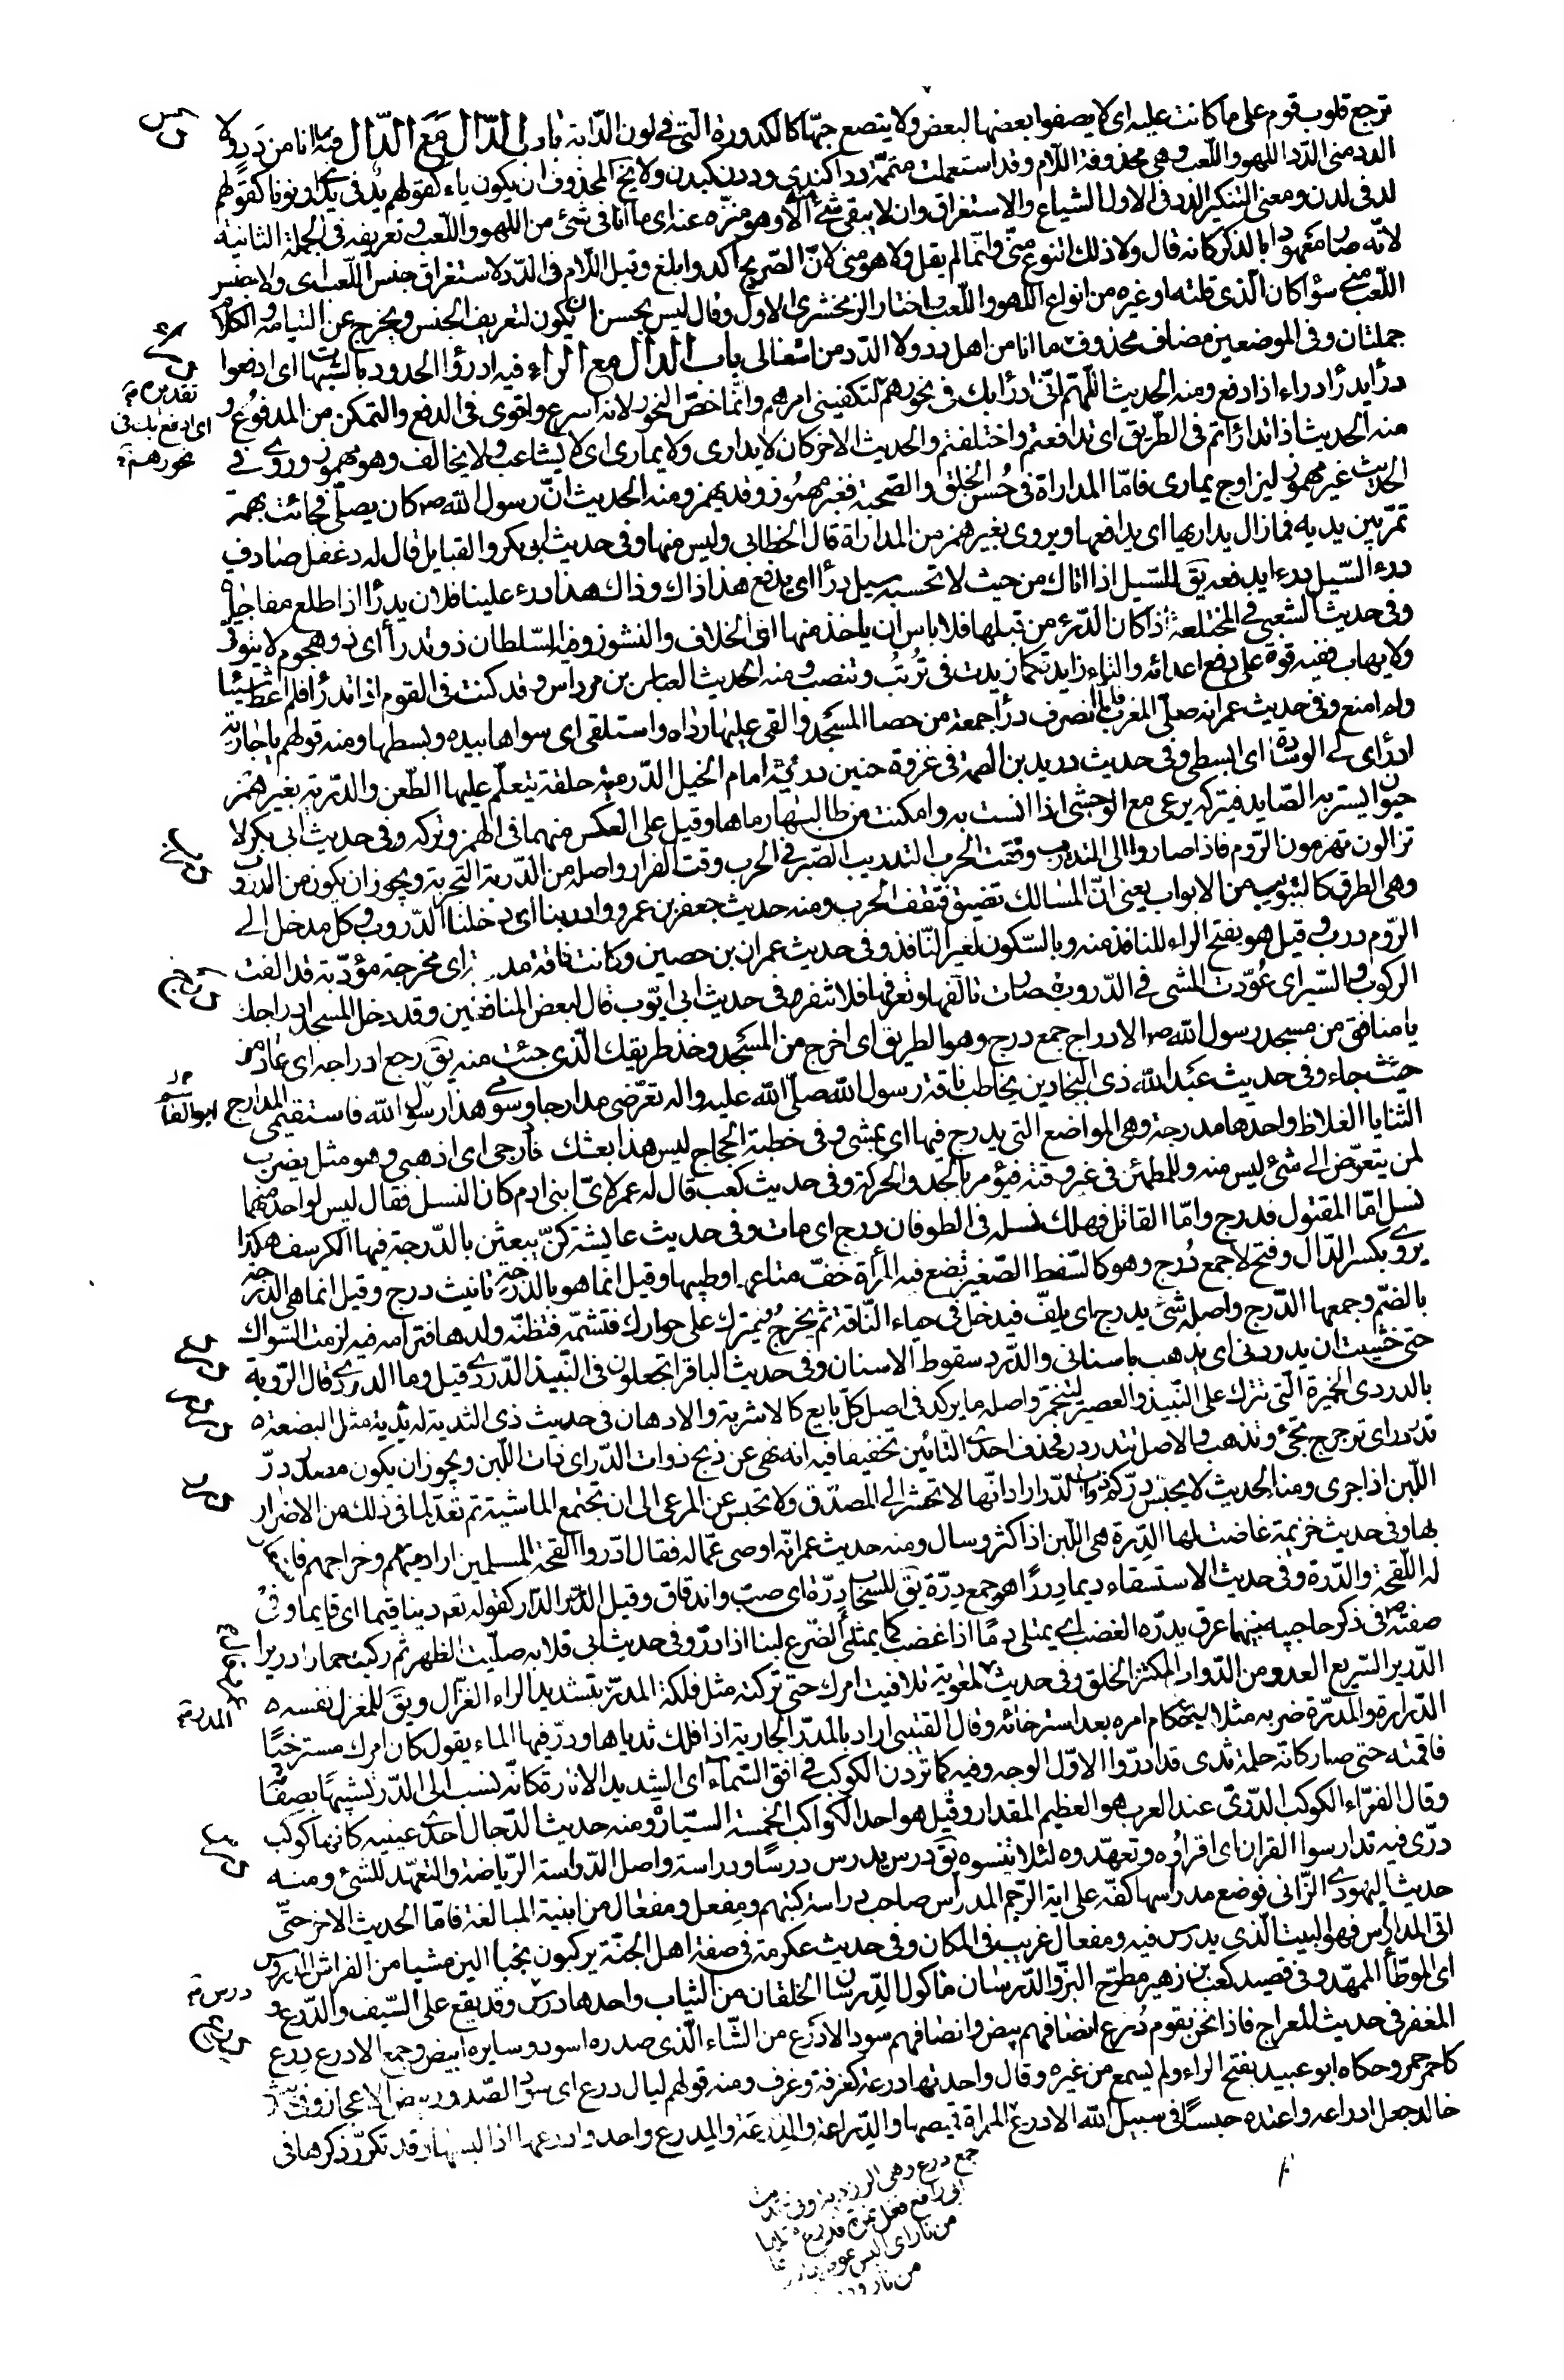 ترجع قلوب قوم على ما كانت عليه اى لا يصفوا بعضها لبعض ولا ينصع حبها كالكدورة التى فى لون الدابة باب الدال مع الدال فيه ما انا من دد ولا
الدد منى الدد اللهو واللعب وهى محذوفة اللام وقد استعملت متممة ددا كندى وددن كبدن ولا يخ المحذوف ان يكون ياء كقولهم يد فى يدى او نونا كقولهم
لد فى لدن ومعنى التنكير الدد فى الاول الشياع والاستغراق وان لا يبقى شئ منه الا وهو منزه عنه اى ما انا فى شئ من اللهو واللعب وتعريفه فى الجملة الثانية
لانه صار معهودا بالذكر كانه قال ولا ذلك النوع منى وانما لم يقل ولا هو منى لان الصريح اكد وابلغ وقيل اللام فى الدد لاستغراق جنس اللعب اى ولا جنس
اللعب منى سواء كان الذى قلته او غيره من انواع اللهو واللعب واختار الزمخشرى الاول وقال ليس يحسن ان يكون لتعريف الجنس ويخرج عن التيامه والكلام
جملتان وفى الموضعين مضاف محذوف ما انا من اهل دد ولا الدد من اشغالى باب الدال مع الراء فيه ادرؤا الحدود بالشبهات اى ادفعوا
درأ يدرأ درءا اذا دفع ومنه الحديث اللهم انى ادرأ بك فى نحورهم لتكفينى امرهم وانما خص النحور لانه اسرع واقوى فى الدفع والتمكن من المدفوع و
منه الحديث اذا تدارأتم فى الطريق اى تدافعتم واختلفتم والحديث الاخر كان لا يدارى ولا يمارى اى لا يشاغب ولا يخالف وهو مهموز وروى فى
الحديث غير مهموز ليزاوج يمارى فاما المداراة فى حسن الخلق والصحبة فغير مهموز وقد يهمز ومنه الحديث ان رسول الله ص كان يصلى فجائت بهمة
تمر بين يديه فما زال يداريها اى يدافعها ويروى بغير همز من المداراة قال الخطابى وليس منها وفى حديث ابو بكر والقبايل قال له دغفل صادف
درء السيل درءا يدفعه يق للسيل اذا اتاك من حيث لا تحتسبه سيل درأ اى يدفع هذا ذاك وذاك هذا ودرء علينا فلان يدرأ اذا طلع مفاجاة
وفى حديث الشعبى فى المختلعة اذا كان الدرء من قبلها فلا باس ان ياخذ منها اى الخلاف والنشوز وفيه السلطان ذو تدرأ اى ذو هجوم لا يتوقى
ولا يهاب ففيه قوة على دفع اعدائه والتاء زايدة كما زيدت فى ترتب وتنضب ومنه الحديث العباس بن مرداس وقد كنت فى القوم اذا تدرأ فلم اعط شيئا
ولم امنع وفى حديث عمر انه صلى المغرب فلما انصرف درأ جمعة من حصا المسجد والقى عليها رداه واستلقى اى سواها بيده وبسطها ومنه قولهم يا جارية
ادرأى لى الوسادة اى ابسطى وفى حديث دريد بن الصمة فى غزوة حنين دريئة امام الخيل الدريئة حلقة يتعلم عليها الطعن والدرية بغير همز
حيوان يستر به الصايد فيتركه يرعى مع الوحش اذا انست به وامكنت من طالبها رماها وقيل على العكس منهما فى الهمز وتركه وفى حديث ابى بكر لا
تزالون تهزمون الروم فاذا صاروا الى التدريب وقفت الحرب التدريب الصبر فى الحرب وقت الفرار واصله من الدربة التجربة ويجوز ان يكون من الدروب
وهى الطرق كالتبويب من الابواب يعنى ان المسالك تضيق فتقف الحرب ومنه حديث جعفر بن عمرو وادربنا اى دخلنا الدروب وكل مدخل الى
الروم درب وقيل هو بفتح الراء للنافذ منه وبالسكون لغير النافذ وفى حديث عمران بن حصين وكانت ناقة مدربة اى مخرجة مؤدبة قد الفت
الركوب والسير اى عودت المشى فى الدروب فصارت تالفها وتعرفها فلا تنفر فى حديث ابى ايوب قال لبعض المنافقين وقد دخل المسجد ادراجك
يا منافق من مسجد رسول الله ص الادراج جمع درج وهو الطريق اى اخرج من المسجد وخذ طريقك الذى جئت منه يق رجع ادراجه اى عاد من
حيث جاء وفى حديث عبد الله ذى البجادين يخاطب ناقة رسول الله صلى الله عليه واله تعرضى مدارجا وسومى هذا رسول الله فاستقيمى المدارج
الثنايا الغلاظ واحدها مدرجة وهى المواضع التى يدرج فيها اى يمشى وفى خطبة الحجاج ليس هذا بعشك فادرجى اى اذهبى وهو مثل يضرب
لمن يتعرض الى شئ ليس منه وللمطمئن فى غير وقته فيؤمر بالجد والحركة وفى حديث كعب قال له عمر لاى ابنى ادم كان النسل فقال ليس لواحد منهما
نسل اما المقتول فدرج واما القاتل فهلك نسله فى الطوفان درج اى مات وفى حديث عايشة كن يبعثن بالدرجة فيها الكرسف هكذا
يروى بكسر الدال وفتح لا جمع درج وهو كالسفط الصغير تضع فيه المرأة خف متاعها وطيبها وقيل انما هو بالدرجة تانيث درج وقيل انما هى الدرجة
بالضم وجمعها الدرج واصله شئ يدرج اى يلف فيدخل فى حياء الناقة ثم يخرج فيترك على حوارك فتشمه فتظنه ولدها فترامه فيه لزمت السواك
حتى خشيت ان يدردنى اى يذهب باسنانى والدرد سقوط الاسنان وفى حديث الباقر اتجعلون فى النبيذ الدردى قيل وما الدردى قال الروبة
بالدردى الخميرة التى تترك على النبيذ والعصير ليتخمر واصله ما يركد فى اصل كل مايع كالاشربة والادهان فى حديث ذى الثدية له ثدية مثل البضعة
تدردر اى ترجرج تجئ وتذهب والاصل تتدردر فحذف احدى التائين تخفيفا فيه انه نهى عن ذبح ذوات الدر اى ذات اللبن ويجوز ان يكون مصدر در
اللبن اذا جرى ومنه الحديث لا يحبس دركم ذوات الدر اراد انها لا تحشر الى المصدق ولا تحبس عن المرعى الى ان تجتمع الماشية ثم تعد لما فى ذلك من الاضرار
بها وفى حديث خزيمة غاضت لها الدرة هى اللبن اذا كثر وسال ومنه حديث عمر انه اوصى عماله فقال ادروا لقحة المسلمين اراد فيئهم وخراجهم فاستعار
له اللقحة والدرة وفى حديث الاستسقاء ديما دررا هو جمع درة يق للسحاب درة اى صب واندقاق وقيل الدرر الدار كقوله تع دينا قيما اى قايما وفى
صفته ص فى ذكر حاجبيه بينهما عرق يدره الغضب اى يمتلى دما اذا غضب كما يمتلئ الضرع لبنا اذا در وفى حديث ابى قلابه صليت الظهر ثم ركبت حمارا دريرا
الدرير السريع العدو من الدواب المكتنز الخلق وفى حديث لمعوية تلافيت امرك حتى تركته مثل فلكة المدر بتشديد الراء الغزال ويق للمغزل نفسه
الدرارة والمدرة ضربه مثلا ليحكام امره بعد استرخائه وقال القتبى اراد بالمدر الجارية اذا فلك ثدياها ودر فيهما الماء يقول كان امرك مسترخيا
فاقمته حتى صار كانه حلمة ثدى قد ادر والاول الوجه وفيه كما ترون الكوكب فى افق السماء اى الشديد الانارة كانه نسب الى الدر تشبيها بصفائه
وقال الفراء الكوكب الدرى عند العرب هو العظيم المقدار وقيل هو احد الكواكب الخمسة السيارة ومنه حديث الدجال احدى عينيه كانها كوكب
درى فيه تدارسوا القران اى اقراؤه وتعهدوه لئلا تنسوه يق درس يدرس درسا ودراسة واصل الدراسة الرياضة والتعهد للشئ ومنه
حديث اليهودى الزانى فوضع مدراسها كفه على اية الرجم المدراس صاحب دراسة كتبهم ومفعل ومفعال من ابنية المبالغة فاما الحديث الاخر حتى
اتى المدراس فهو البيت الذى يدرس فيه ومفعال غريب فى المكان وفى حديث عكرمة فى صفة اهل الجنة يركبون نجبا الين مشيا من الفراش المدروس
اى الموطأ الممهد وفى قصيد كعب بن زهير مطرح البز والدرسان ماكول الدرسان الخلقان من الثياب واحدها درس وقد يقع على السيف والدرع و
المغفر فى حديث المعراج فاذا نحن بقوم درع انصافهم بيض وانصافهم سود الادرع من الشاء الذى صدره اسود وسايره ابيض وجمع الادرع درع
كاحمر حمر وحكاه ابو عبيد بفتح الراء ولم يسمع من غيره وقال واحدتها درعة كغرفة وغرف ومنه قولهم ليال درع اى سود الصدور بيض الاعجاز وفى
خالد جعل ادراعه واعتده حبسا فى سبيل الله الادرع المراة قميصها والدراعة والمدرعة والمدرع واحد وادرعها اذا لبسها وقد تكرر ذكرها فى
اى ادفع بك فى
نحورهم
ابو الفا
المدرة
درس
جمع درع وهى الزردية وفى
ابى رافع فغل نمرة فدرع
من نار اى البس عوضها
من نار